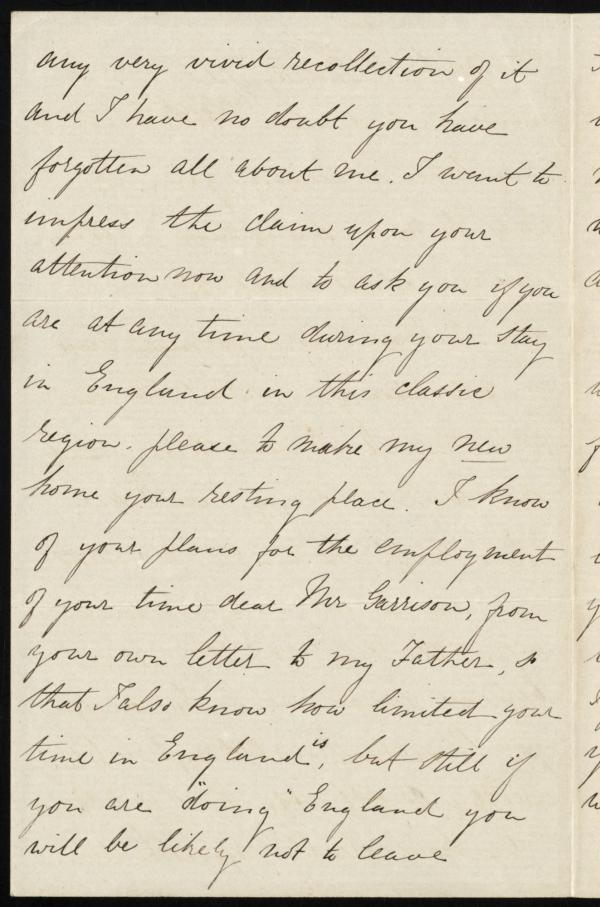 any very vivid recollection of it
and I have no doubt you have
forgotten all about me. I want to
impress the claim upon your
attention now and to ask you if you
are at any time during your stay
in England in this classic
region. please to make my new
home your resting place. I know
of your plans for the employment
of your time dear Mr Garrison, from
your own letter to my Father, so
that I also know how limited your
time in England is, but still if
you are "doing" England you
will be likely not to leave